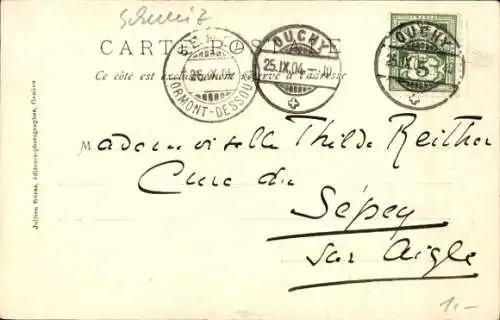 Schweiz
CARTE POSTALE
Ce côté est exclusivement réservé à l'adresse
OUCHY
25.IX.04.-10
OUCHY
25.IX
5
SÉPEY
26.IX.04
(ORMONT-DESSOUS)
Mademoiselle Thilde Reither
Cure du
Sépey
sur Aigle
Jullien frères, éditeurs-photographes, Genève
1.-